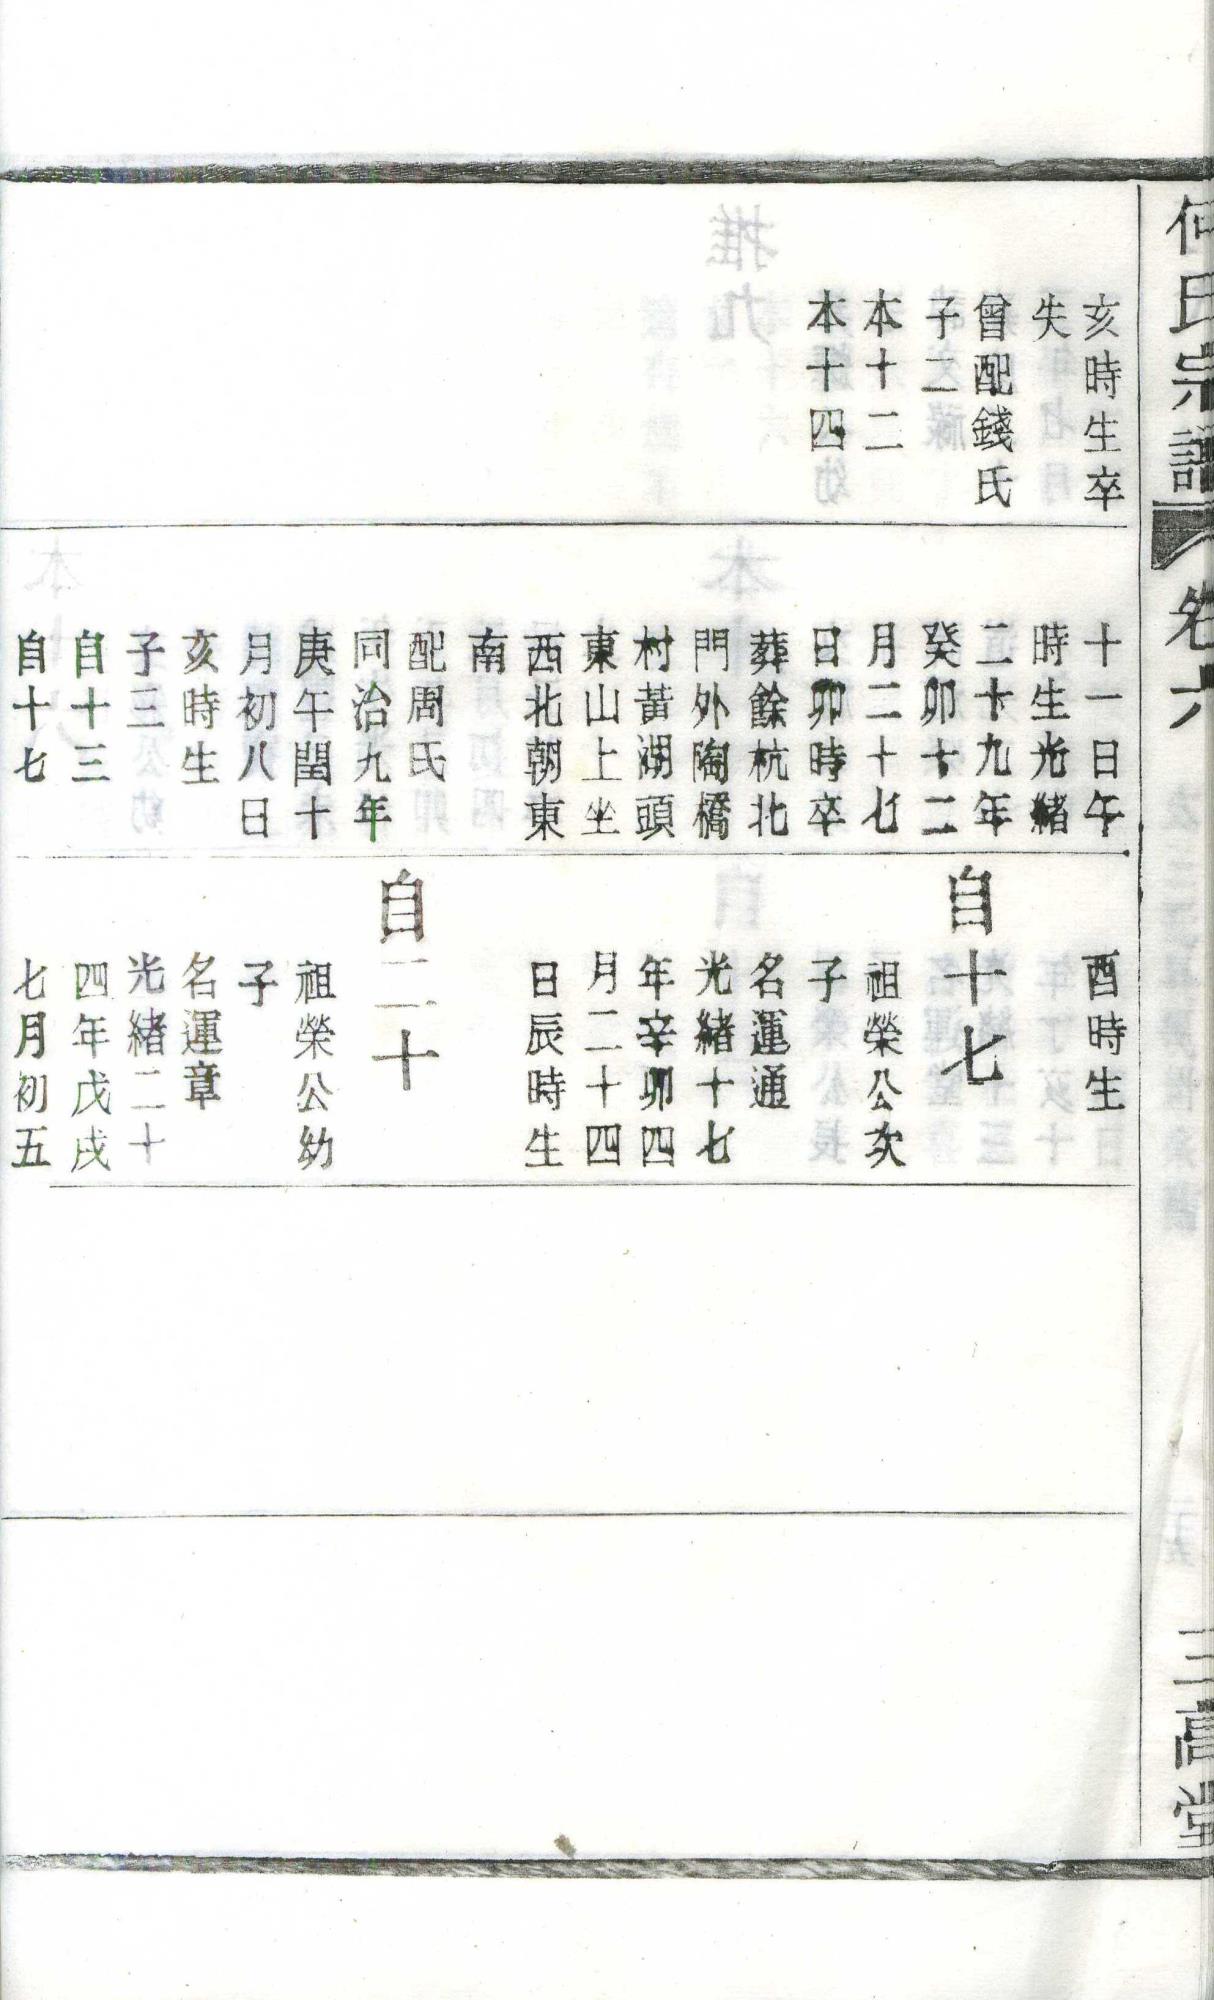 何氏宗譜
卷六
三高堂
亥時生卒
失
曾配錢氏
子二
本十二
本十四
十一日午
時生光緒
二十九年
癸卯十二
月二十七
日卯時卒
葬餘杭北
門外陶橋
村黃湖頭
東山上坐
西北朝東
南
配周氏
同治九年
庚午閏十
月初八日
亥時生
子三
自十三
自十七
酉時生
自十七
祖榮公次
子
名運通
光緒十七
年辛卯四
月二十四
日辰時生
自二十
祖榮公幼
子
名運章
光緒二十
四年戊戌
七月初五